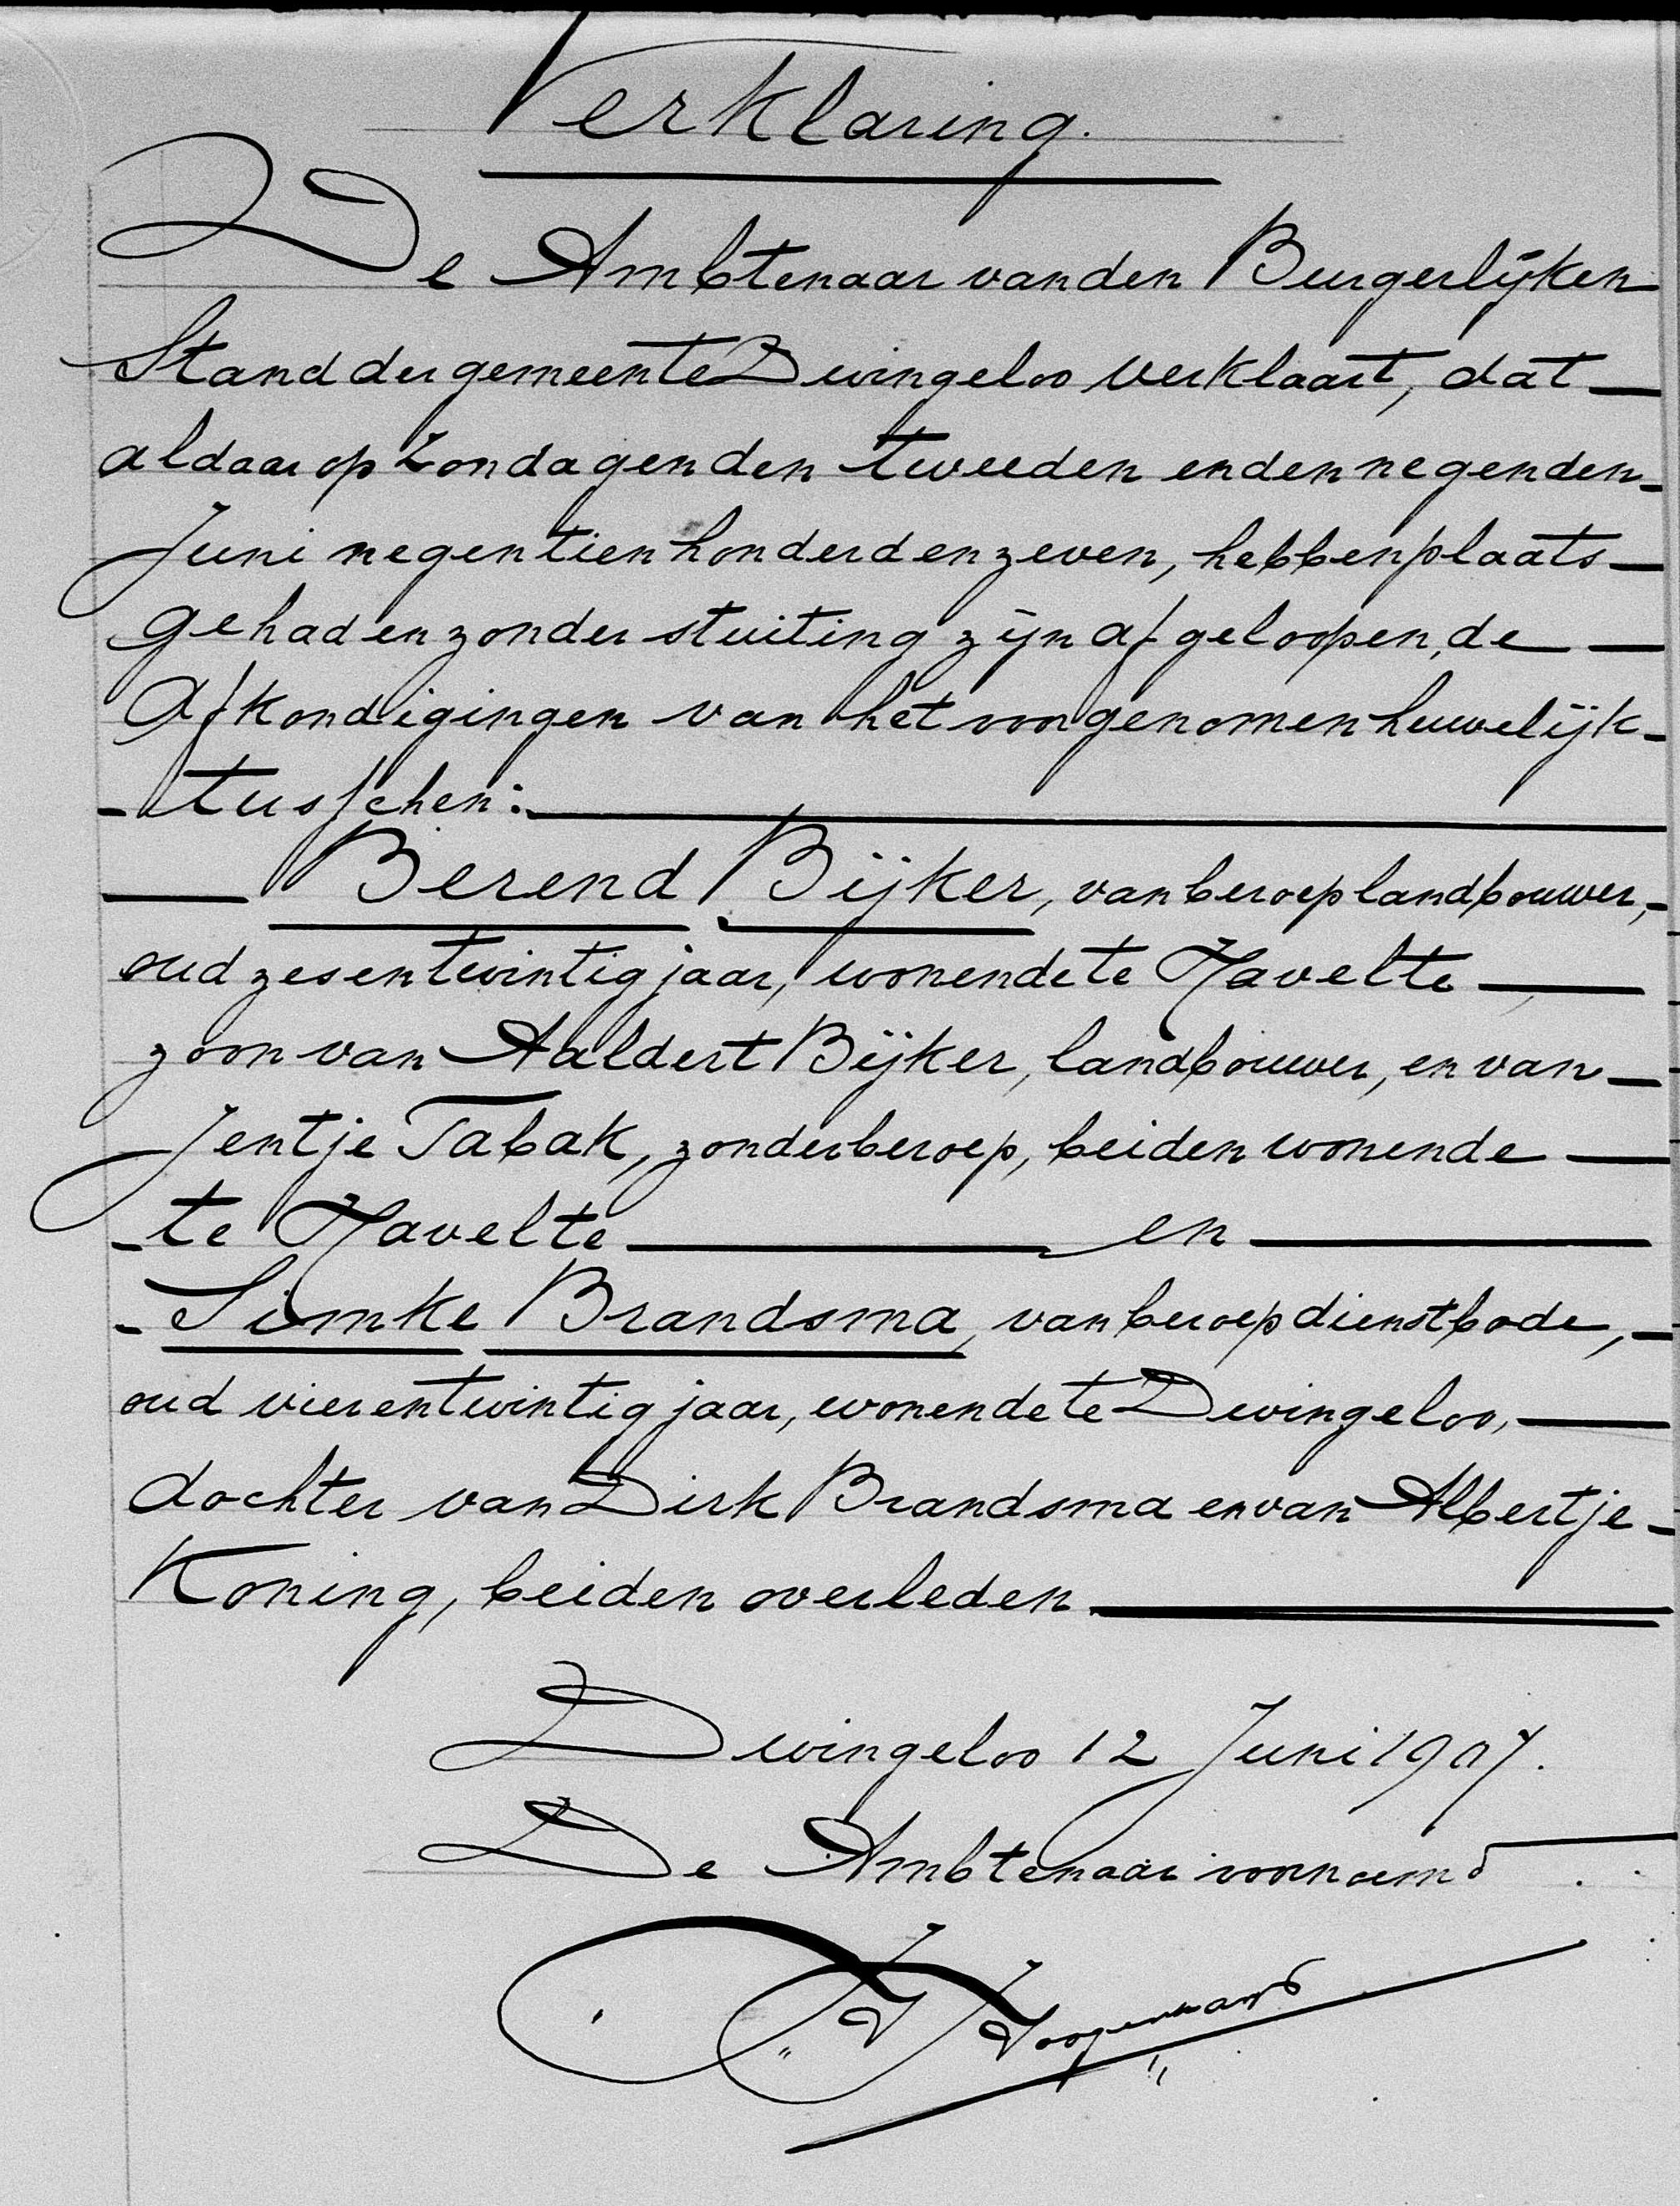 Verklaring.
De Ambtenaar van den Burgerlijken
Stand der gemeente Dwingeloo verklaart, dat
aldaar op Zondagen den tweeden en den negenden
Juni negentienhonderd en zeven, hebben plaats
gehad en zonder stuiting zijn afgeloopen, de
Afkondigingen van het voorgenomen huwelijk
tusschen:
Berend Bijker, van beroep landbouwer,
oud zesentwintig jaar, wonende te Havelte
zoon van Aaldert Bijker, landbouwer, en van
Jentje Tabak, zonder beroep, beiden wonende
te Havelte en
Simke Brandsma, van beroep dienstbode,
oud vierentwintig jaar, wonende te Dwingeloo,
dochter van Dirk Brandsma en van Albertje
Koning, beiden overleden
Dwingeloo 12 Juni 1907.
De Ambtenaar voornoemd